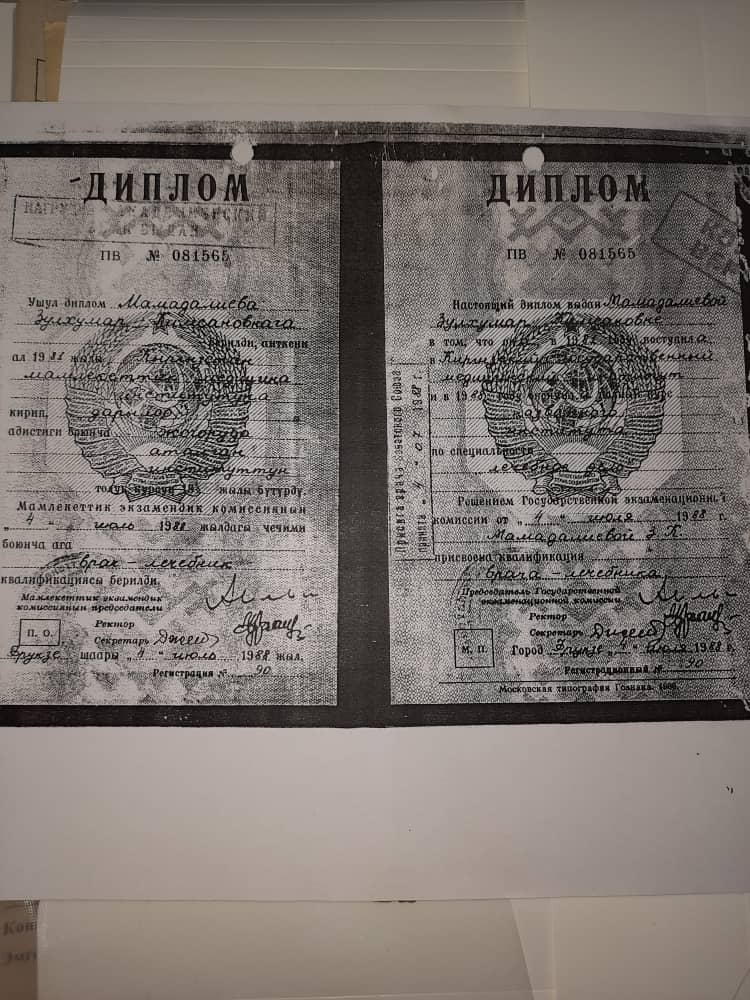 ДИПЛОМ
ПВ № 081565
Ушул диплом Мамадалиева
Зулхумар
берилди, анткени
ал 19 жылы Кыргызстан
мамлекеттик медицина
институтуна
кирип,
адистиги боюнча
аталган
институттун
толук курсун 19 жылы бүтүрдү.
Мамлекеттик экзамендик комиссиянын
„4“ июль 1988 жылдагы чечими
боюнча ага
врач-лечебник
квалификациясы берилди.
Мамлекеттик экзамендик
комиссиянын председатели
Ректор
Секретарь
П. О.
Фрунзе шаары „4“ июль 1988 жыл.
Регистрация № 90
ДИПЛОМ
ПВ № 081565
Настоящий диплом выдан Мамадалиевой
Зулхумар
в том, что он а в 19 году поступил а
в Киргизский государственный
медицинский институт
и в 19 году окончил а полный курс
названного
института
по специальности
лечебное дело
Решением Государственной экзаменационной
комиссии от „4“ июля 1988 г.
Мамадалиевой З. К.
присвоена квалификация
врача-лечебника
Председатель Государственной
экзаменационной комиссии
Ректор
Секретарь
М. П.
Город Фрунзе июля 1988 г.
Регистрационный № 90
Московская типография Гознака.
Присяга врача Советского Союза
принята „4“ 07 1988 г.